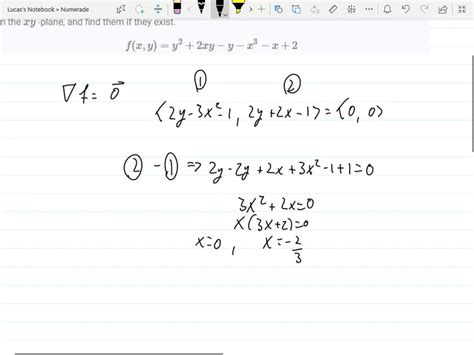 Lucas's Notebook » Numerade
n the xy-plane, and find them if they exist.
f(x, y) = y² + 2xy − y − x³ − x + 2
① ②
∇f = 0⃗
⟨2y-3x²-1, 2y+2x-1⟩ = ⟨0, 0⟩
② - ① ⇒ 2y-2y+2x+3x²-1+1=0
3x²+2x=0
x(3x+2)=0
x=0, x=-2/3